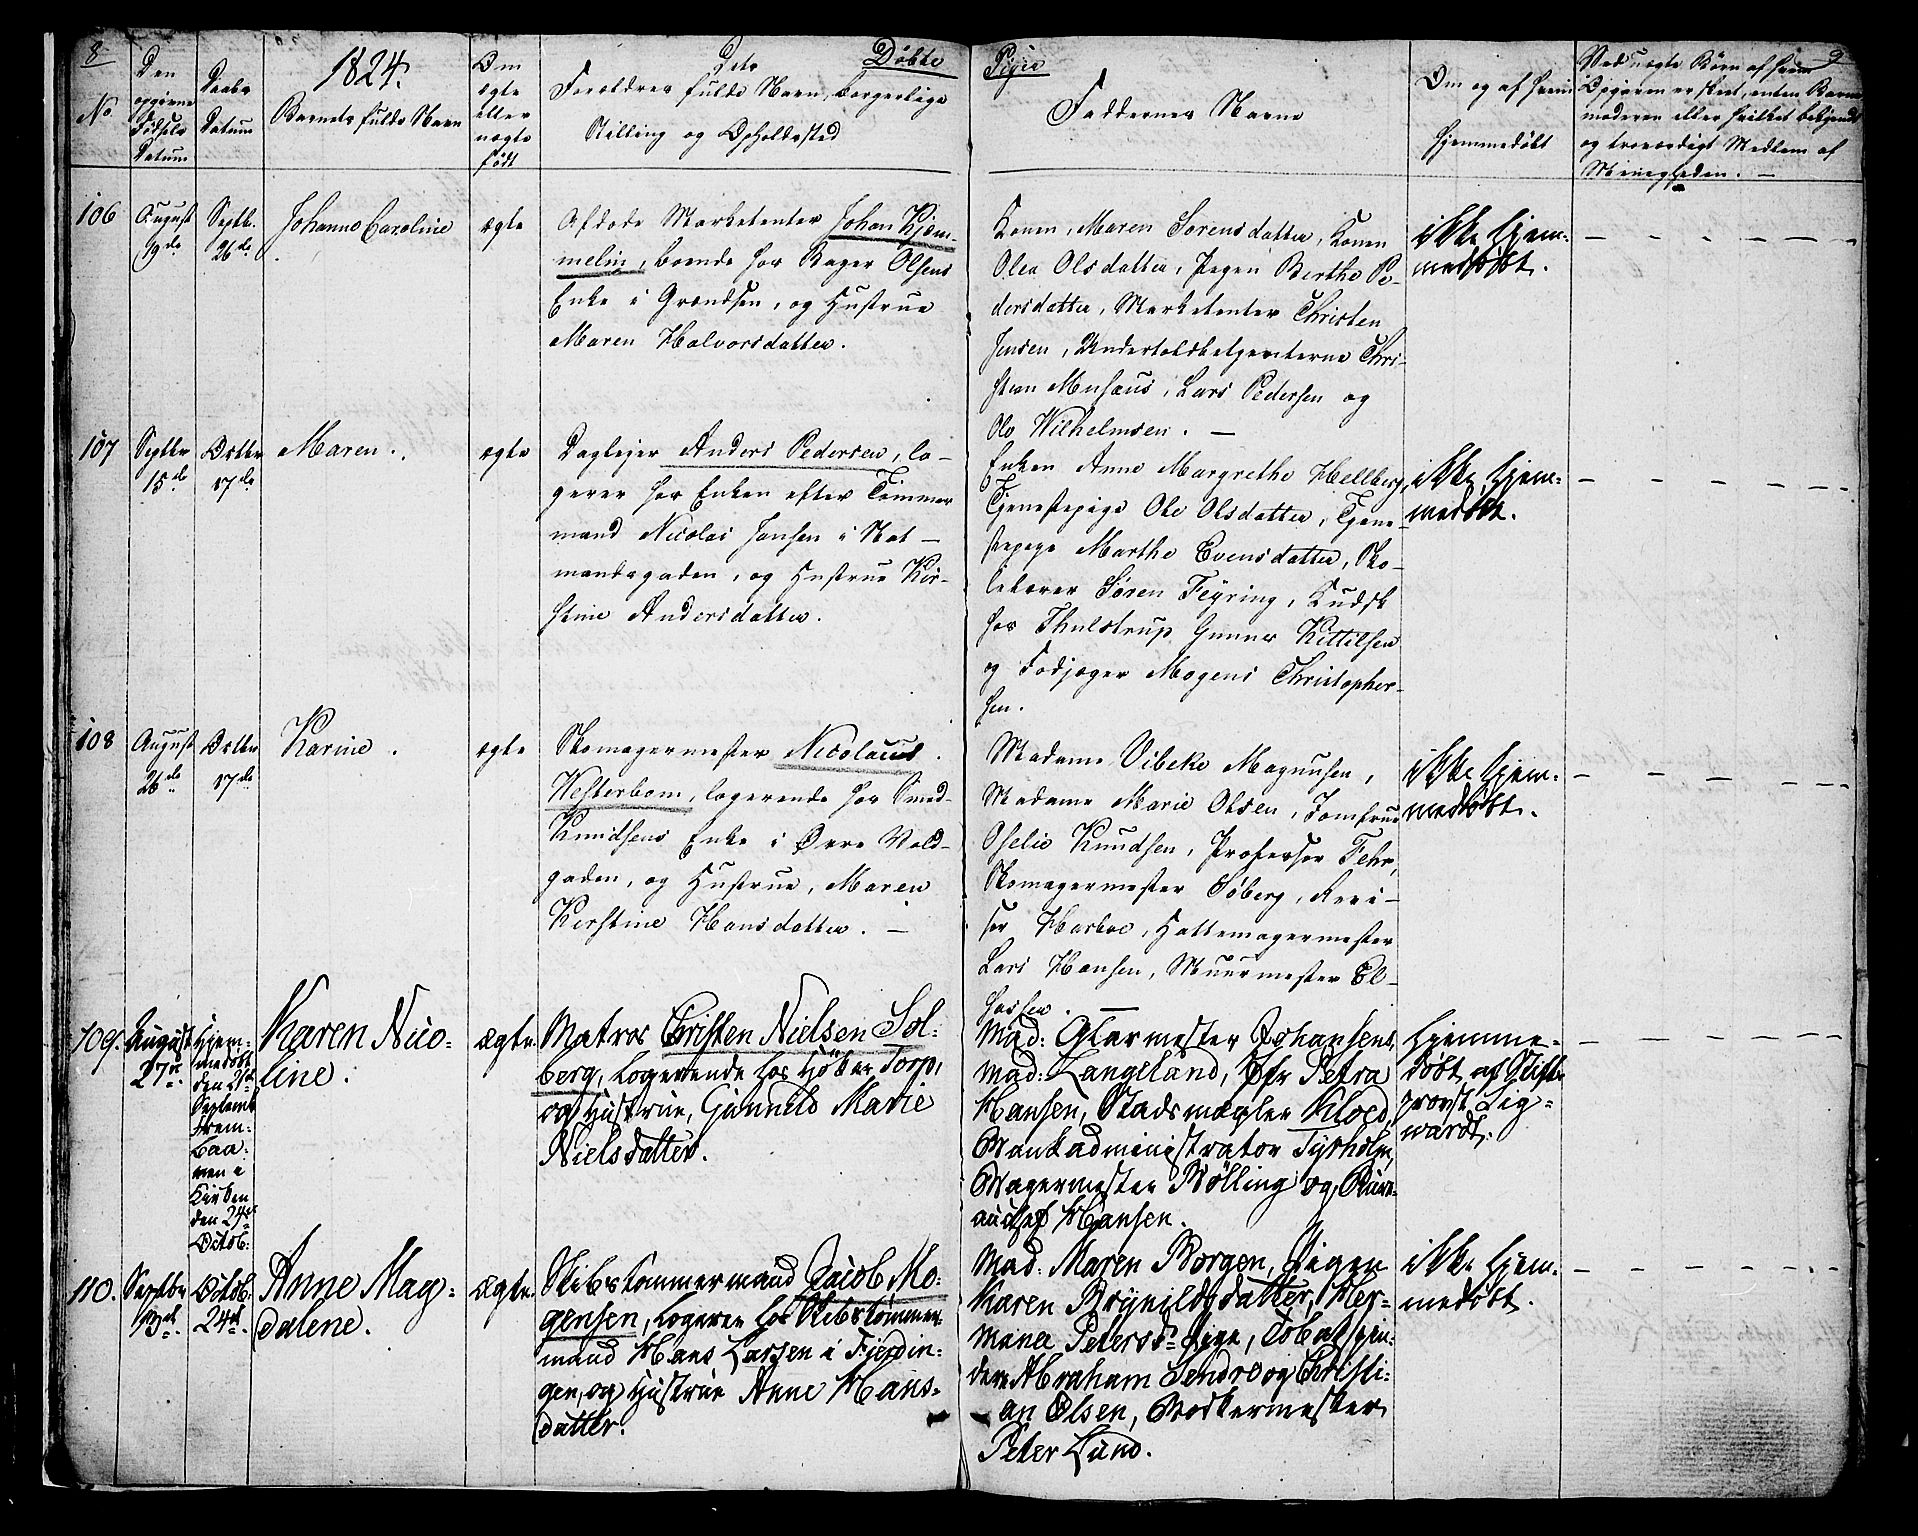 8
Døbte
Pigie
9
No
Den
opgivne
Fødsels
Datum
Daabs
Datum
1824.
Barnets fulde Navn
Om
ægte
eller
uægte
født
Dets
Forældres fulde Navn, borgerlige
Stilling og Opholdssted
Faddernes Navne
Om og af hvem
hjemmedøbt
Ved uægte Børn af hvem
Opgaven er skeet, enten Barne-
moderen eller hvilket bekjendt
og troværdigt Medlem af
Menigheden. —
106
August
19de
Septb.
26de
Johanne Caroline
ægte
Afdøde Marketenter Johan Kjem-
melin, boende hos Bager Olsens
Enke i Grændsen, og Hustrue
Maren Halvorsdatter.
Konen, Maren Sørensdatter, Konen
Olea Olsdatter, Pigen Berthe Pe-
dersdatter, Marketenter Christen
Jensen, Undertoldbetjenterne Chri-
stian Musæus, Lars Pedersen og
Ole Wilhelmsen. —
ikke hjem-
medøbt.
107
Septbr
15de
Octbr
17de
Maren.
ægte
Daglejer Anders Pedersen, lo-
gerer hos Enken efter Tømmer
mand Nicolai Jansen i Nat-
mandsgaden, og Hustrue Kir-
stine Andersdatter.
Enken Anne Margrethe Hellberg,
Tjenestepige Ole Olsdatter, Tjene-
stepige Marthe Evensdatter, Sko-
lelærer Søren Feyring, Kudsk
hos Thulstrup Gunner Kittilsen
og Fodjæger Mogens Christopher-
sen.
ikke hjem-
medøbt.
108
August
26de
Octbr
17de
Karine.
ægte
Skomagermester Nicolaus
Westerbom, logerende hos Smed
Knudsens Enke i Øvre Vold-
gaden, og Hustrue, Maren
Kirstine Hansdatter. —
Madame Vibeke Magnusen,
Madame Marie Olsen, Jomfrue
Oselie Knudsen, Professor Fehr,
Skomagermester Søberg, Revi-
sor Harboe, Hattemagermester
Lars Hansen, Muurmester El-
ikke hjem-
medøbt.
109.
August
27de.
Hjem-
medøbt
den 21de
Septembr
frem-
Baa-
ren i
Kirken
den 24de
Octob:
Karen Nico-
line.
ægte.
Matros Cristen Nielsen Sol-
berg, logerende hos Høker Torp,
og Hustrue, Gunnild Marie
Nielsdatter.
Mad: Glarmester Johansens,
Mad: Langeland, Jfr Petra
Hansen, Stadsmægler Kloed,
Bankadministrator Tyrholm,
Bagermester Bølling og
Hansen.
Hjemme-
døbt af Stifts-
provst Lig-
wardt.
110.
Septbr
13de.
Octob:
24de.
Anne Mag-
dalene.
ægte.
Skibstømmermand Jacob Mo-
gensen, logerer hos Skibstømmer
mand Hans Larsen i Fjerdin-
gen, og Hustrue Anne Hans-
datter.
Mad: Maren Borgen, Pigen
Karen Brynildsdatter, Her-
mane Petersd. Pige, Tobakspin-
dere Abraham Sendro og Christi-
an Olsen, Bødkermester
Peter Lund.
ikke hjem-
medøbt.